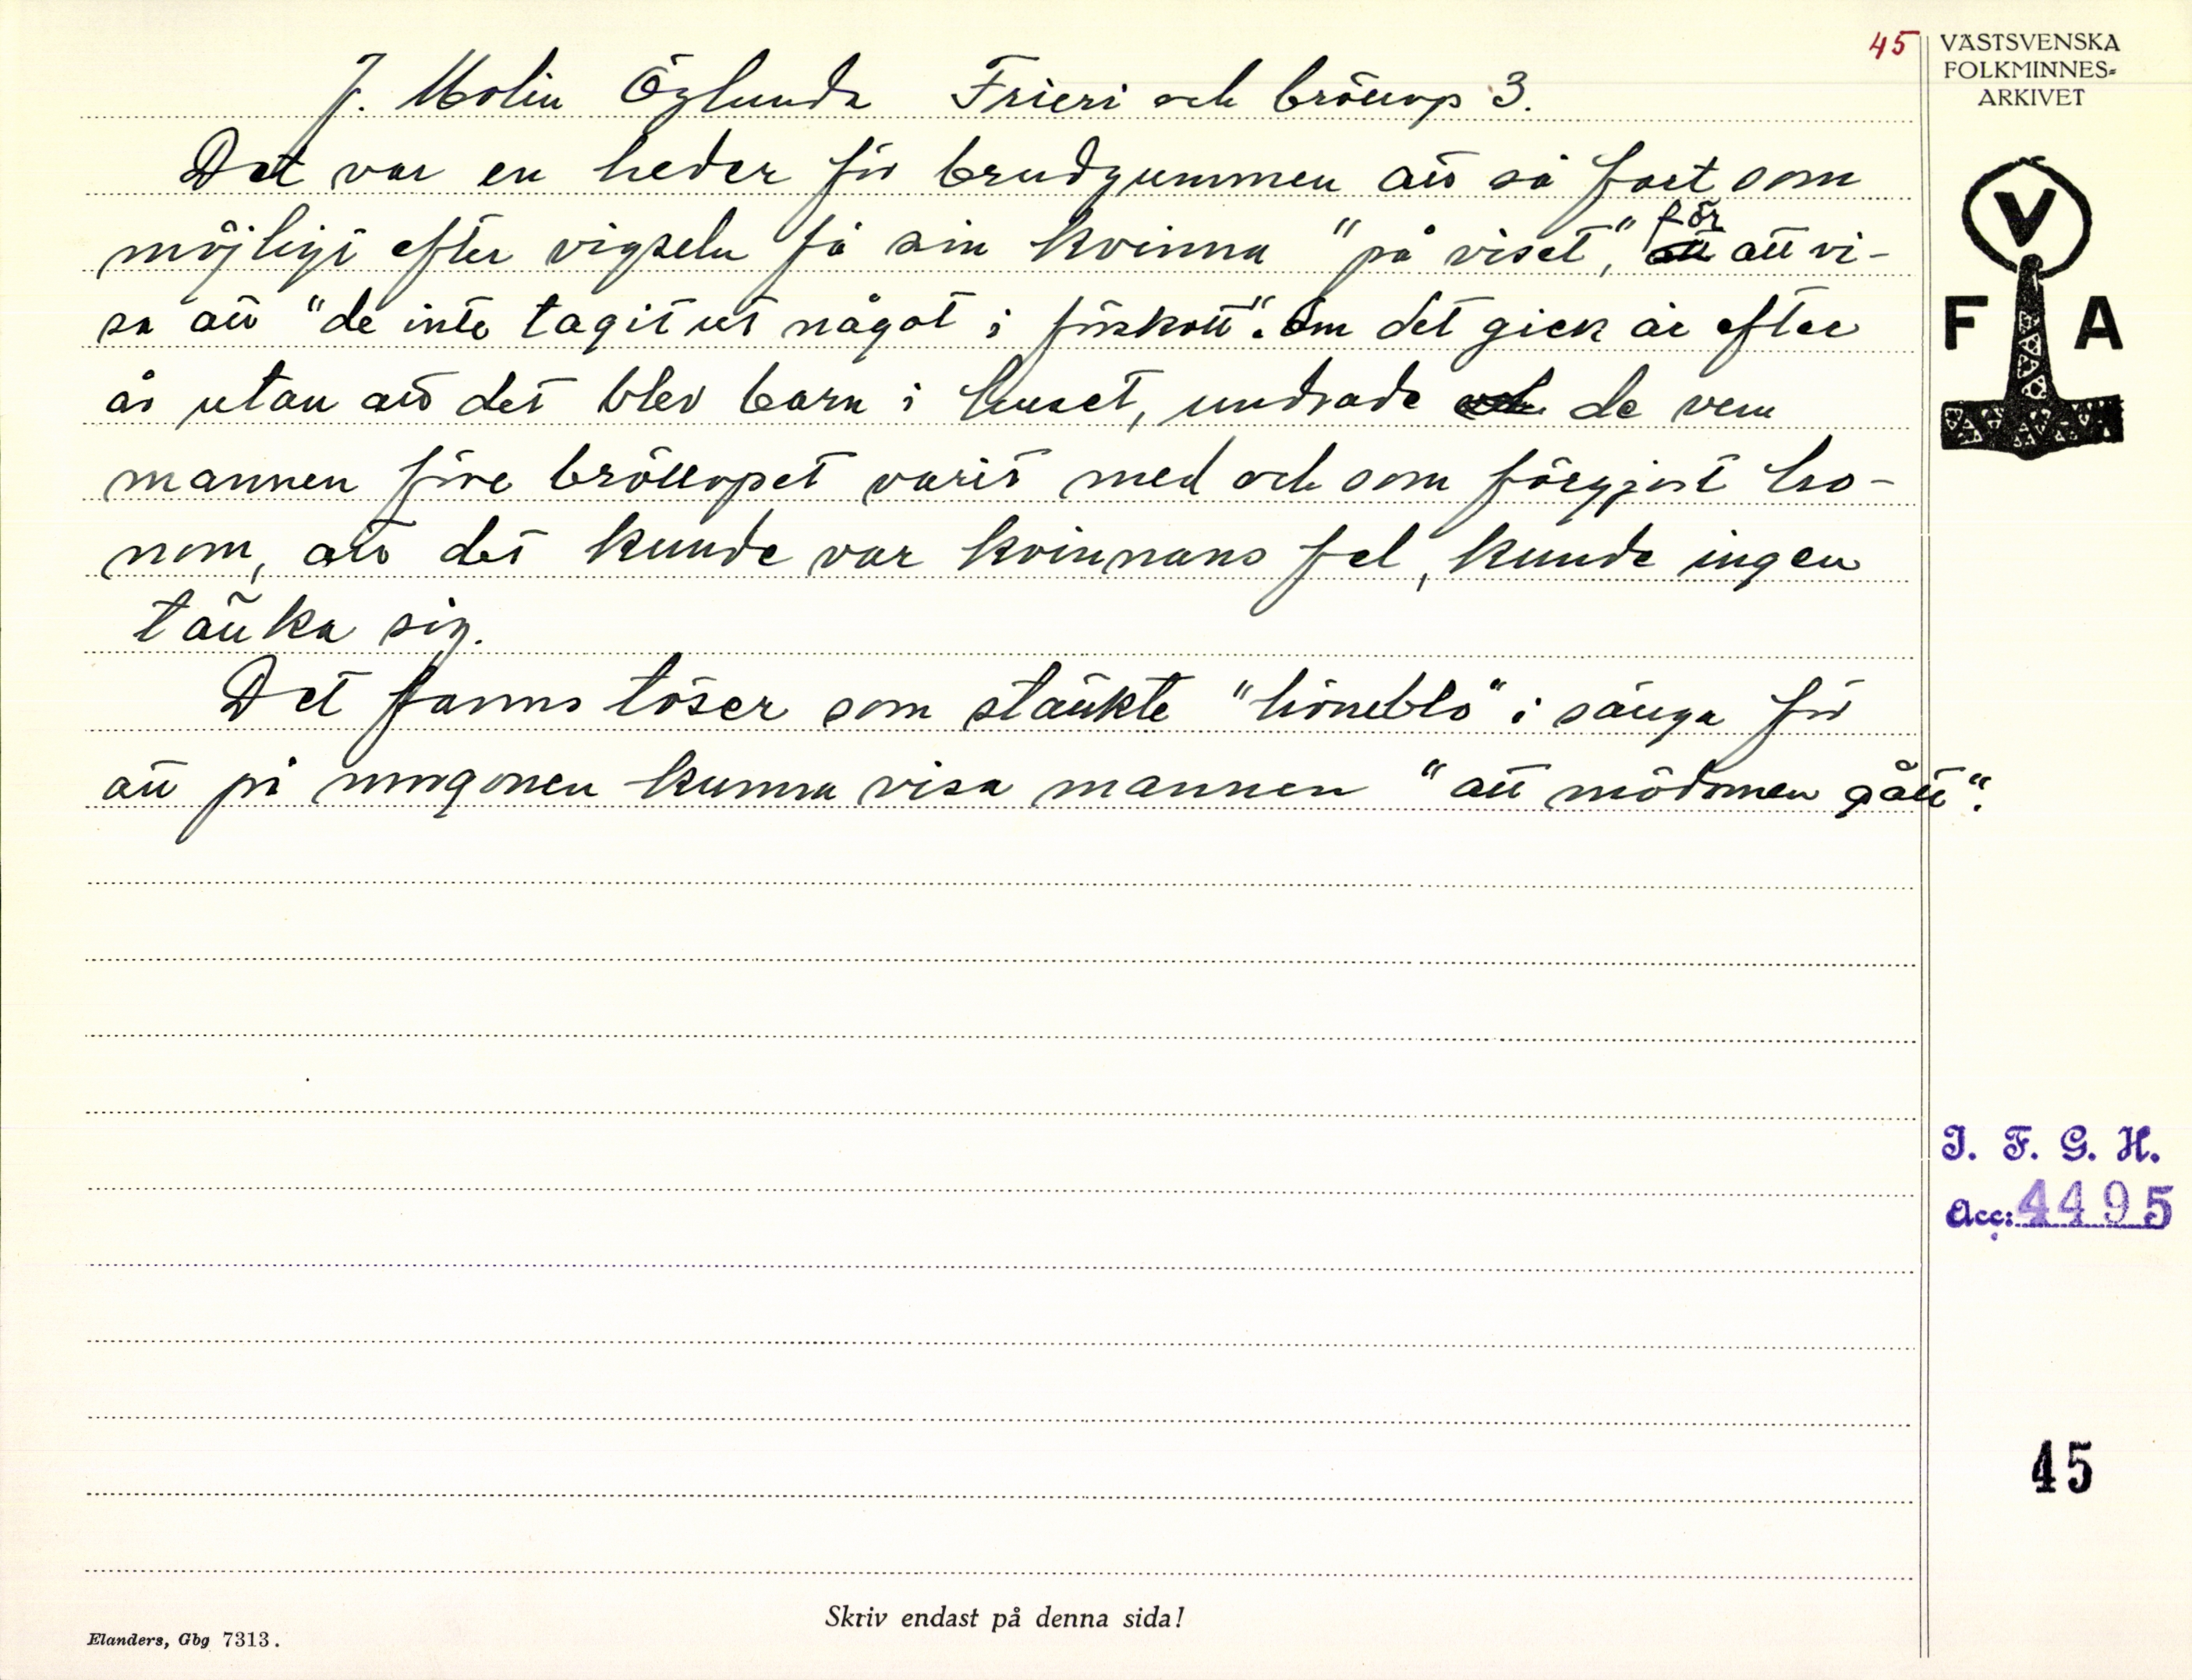 45
VÄSTSVENSKA
FOLKMINNES=
ARKIVET
J. Molin Öglunda Frieri och bröllop 3.
Det var en heder för brudgummen att så fort som
möjligt efter vigseln få sin kvinna "på viset", för att vi-
sa att "de inte tagit ut något i förskott". Om det gick år efter
år utan att det blev barn i huset, undrade de vem
mannen före bröllopet varit med och som förgjort ho-
nom, att det kunde var kvinnans fel, kunde ingen
tänka sig.
Det fanns töser som stänkte "höneblo" i sänga för
att på morgonen kunna visa mannen "att mödomen gått".
V
F A
I. F. G. H.
Acc: 4495
45
Skriv endast på denna sida!
Elanders, Gbg 7313.